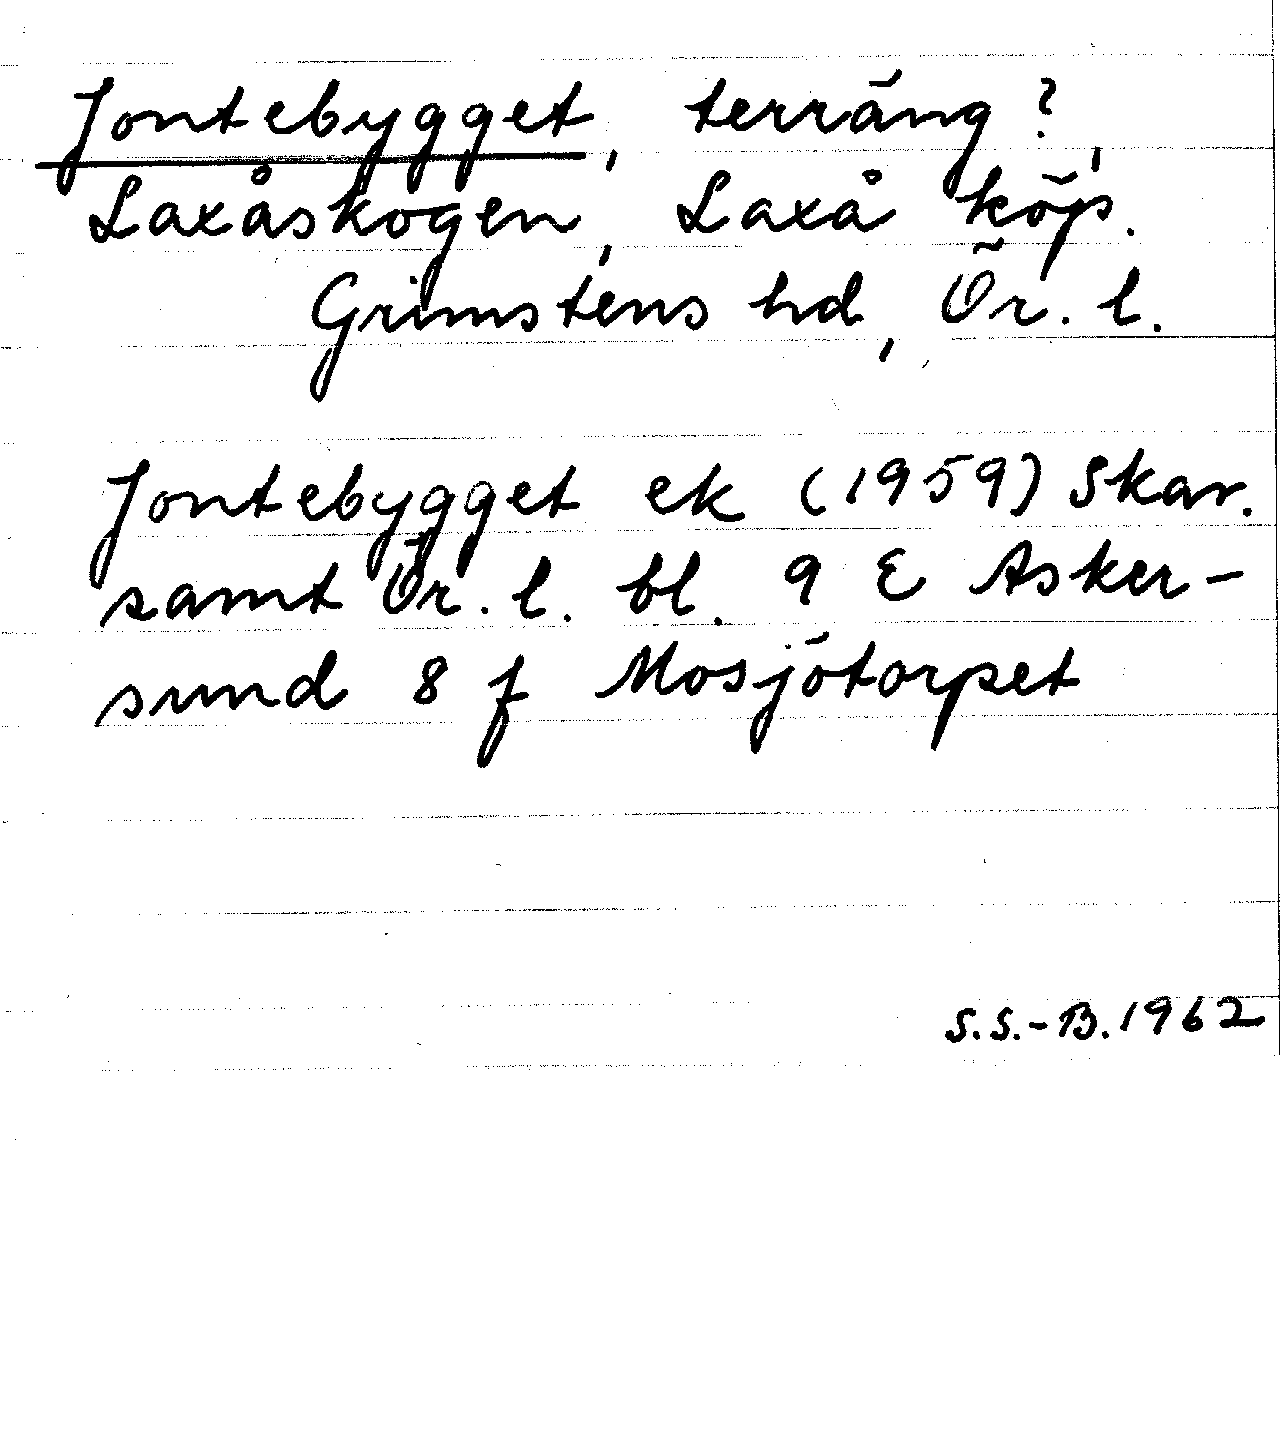 Jontebygget, terräng?,
Laxåskogen, Laxå köp.
Grimstens hd, Ör. l.
Jontebygget ek (1959) Skar.
samt Ör. l. bl. 9 E Asker-
sund 8 f Mosjötorpet
S.S.-B. 1962